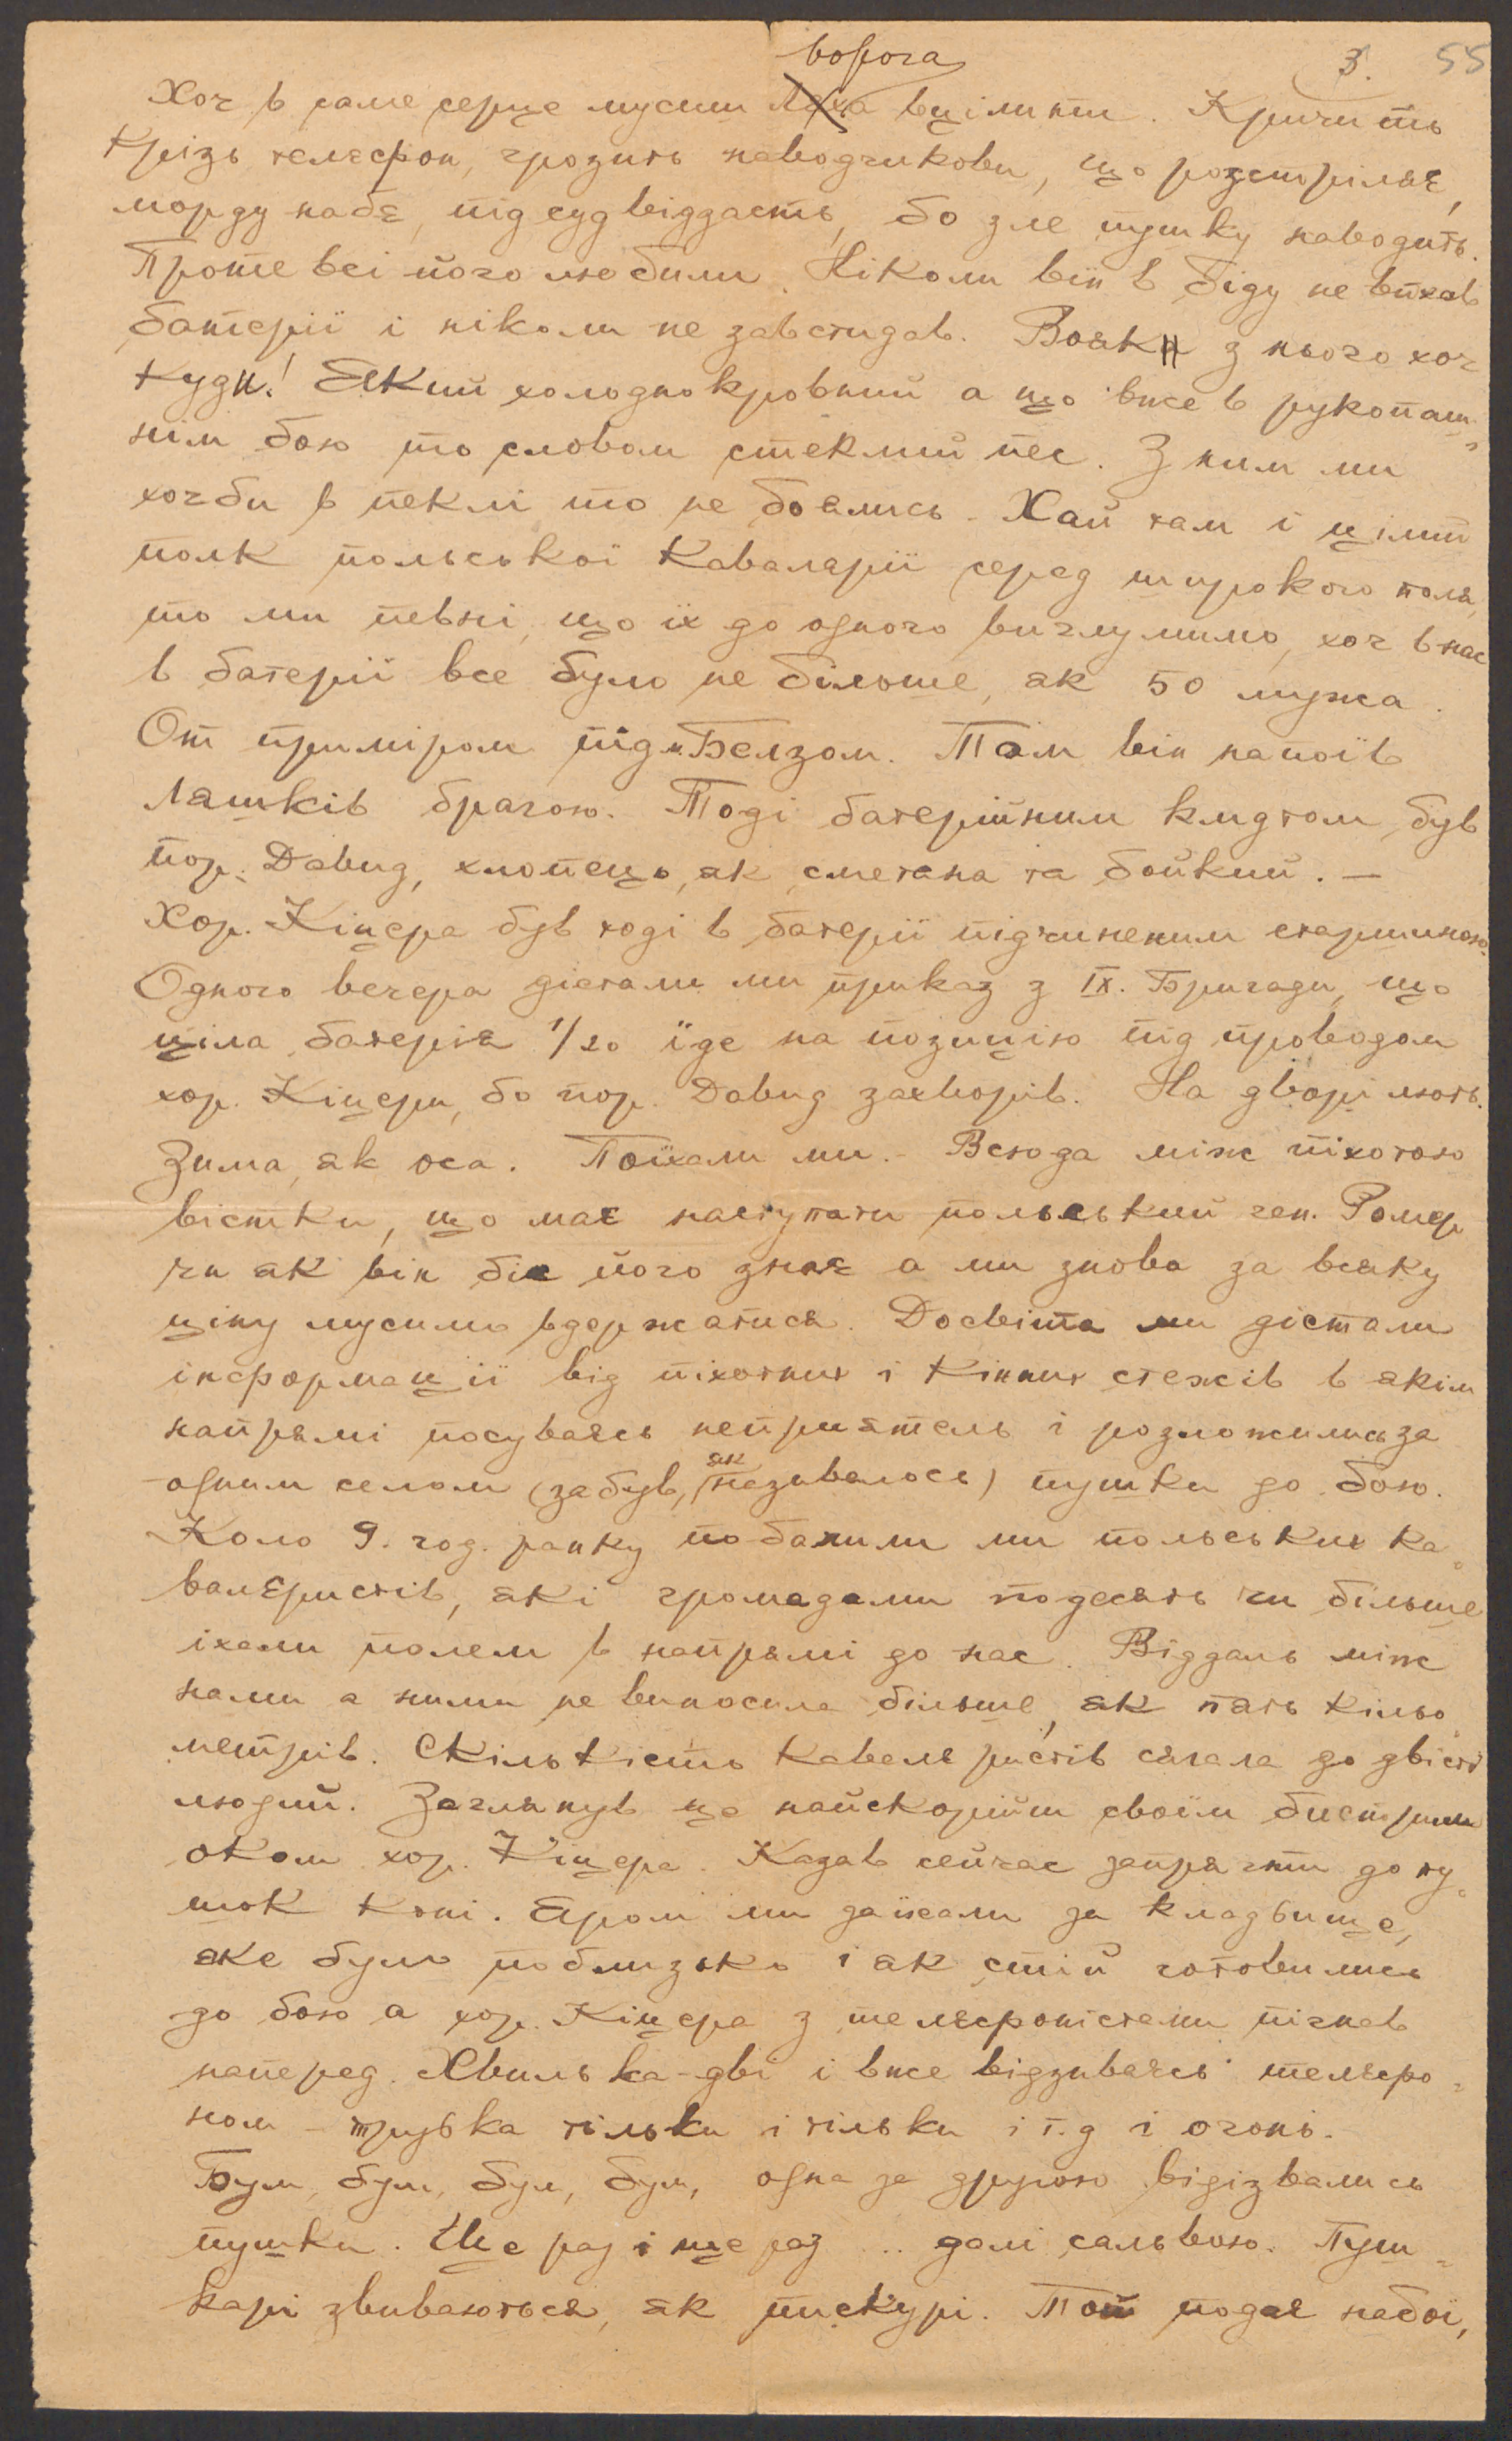 3. 55
ворога
Хоч в саме серце мусиш Ляха вцілити. Кричить
крізь телєфон, грозить наводчикови, що розстріляє,
морду набє, під суд віддасть, бо зле пушку наводить.
Проте всі його любили. Ніколи він в біду не впхав
батерії і ніколи не завстидав. Вояк з нього хоч
куди! Який холоднокровний а що вже в рукопаш-
нім бою то словом стеклий пес. З ним ми
хочби в пеклі то не боялись. Хай там і цілий
полк польської кавалярії серед широкого поля,
то ми певні, що їх до одного вичлумимо, хоч в нас
в батерії все було не більше, як 50 мужа.
От приміром під Белзом. Там він напоїв
Ляшків брагою. Тоді батерійним кмдтом був
пор. Давид, хлопець, як сметана та бойкий. —
Хор. Кіцера був тоді в батерії підчиненим старшиною.
Одного вечера дістали ми приказ з IX. Бригади, що
ціла батерія 1/20 їде на позицію під проводом
хор. Кіцери, бо пор. Давид захворів. На дворі лють.
Зима, як оса. Поїхали ми. Всюда між піхотою
вістки, що має наступати польський ген. Ромер
чи як він біс його знає а ми знова за всяку
ціну мусимо вдержатися. Досвіта ми дістали
інформації від піхотних і кінних стежів в якім
напрямі посуваєсь неприятель і розложились за
одним селом (забув, як називалося) пушки до бою.
Коло 9. год. ранку побачили ми польських ка-
валєристів, які громадами по десять чи більше
їхали полем в напрямі до нас. Віддаль між
нами а ними не виносила більше, як пять кільо-
метрів. Скількість кавалєристів сягала до двісті
людий. Заглянув це найскорійш своїм бистрим
оком хор. Кіцера. Казав сейчас запрягти до пу-
шок коні. Яром ми заїхали за кладбище,
яке було поблизько і як стій готовились
до бою а хор. Кіцера з телєфоністами пігнав
наперед. Хвилька-дві і вже відзиваєсь телєфо-
ном – трубка тільки і тільки і т.д і огонь.
Бум, бум, бум, бум, одна за другою відізвались
пушки. Ще раз і ще раз .. далі сальвою. Пуш-
карі звиваються, як пискурі. Той подає набої,